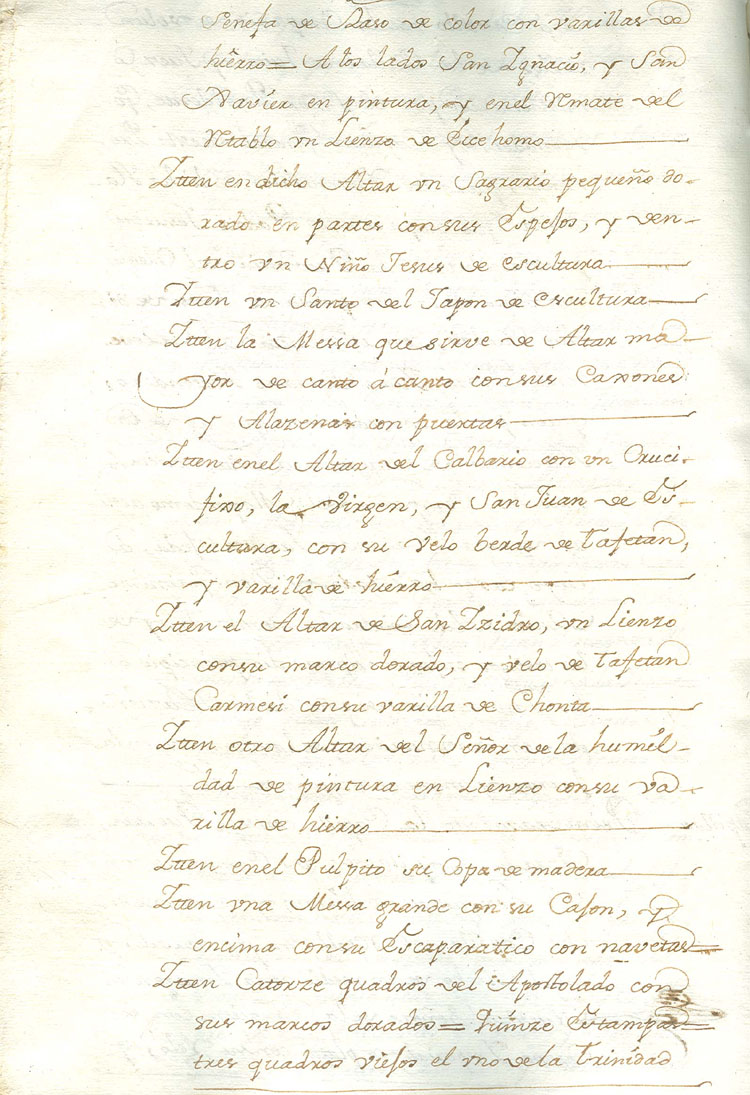 Senefa de Raso de color con varillas de
hierro = A los lados San Ygnacio, y San
Xavier en pintura, y enel Rmate del
Rtablo vn Lienzo de Ecce homo
Ytten en dicho Altar vn Sagrario pequeño do-
rado en partes con sus Espejos, y den-
tro vn Niño Jesus de escultura
Ytten vn Santo del Japon de escultura
Ytten la Messa que sirve de Altar ma-
yor de canto á canto con sus Caxones
y Alazenas con puertas
Ytten enel Altar del Calbario con vn Cruci-
fixo, la Virgen, y San Juan de Es-
cultura, con su velo berde de Tafetan,
y varilla de hierro
Ytten el Altar de San Yzidro, vn Lienzo
consu marco dorado, y velo de Tafetan
Carmesi consu varilla de Chonta
Ytten otro Altar del Señor dela humil-
dad de pintura en Lienzo consu va-
rilla de hierro
Ytten enel Pulpito su Copa de madera
Ytten vna Messa grande con su Cajon, y
encima consu Escaparatico con navetas =
Ytten Catorze quadros del Apostolado con
sus marcos dorados = Quinze Estampas =
tres quadros viejos el vno dela Trinidad